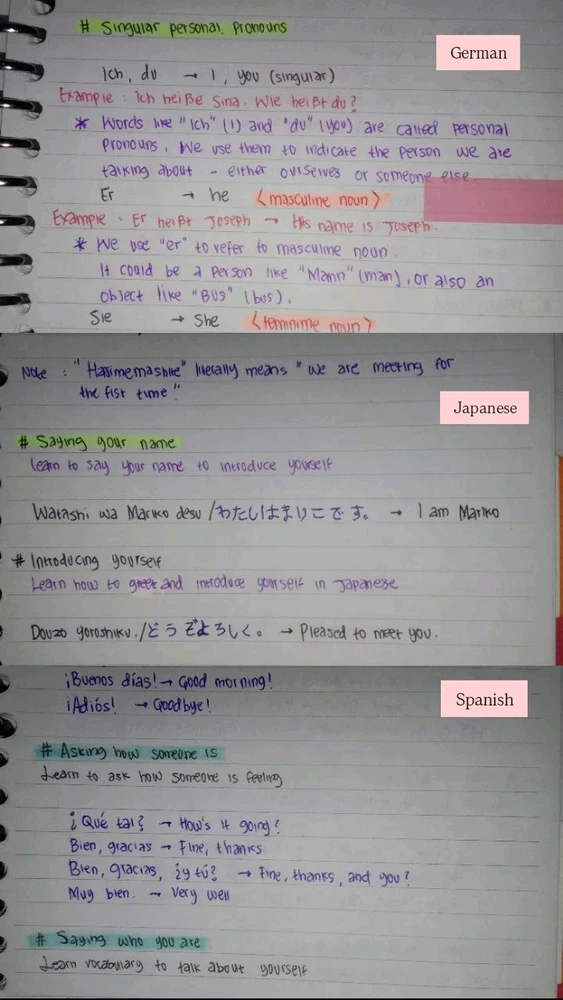 # Singular personal pronouns
German
Ich, du → I, you (singular)
Example : Ich heiße Sina. Wie heißt du?
* Words like "Ich" (I) and "du" (you) are called personal
pronouns. We use them to indicate the person we are
talking about - either ourselves or someone else
Er → he <masculine noun>
Example : Er heißt Joseph → His name is Joseph.
* We use "er" to refer to masculine noun.
It could be a person like "Mann" (man), or also an
object like "BUS" (bus).
Sie → She <feminime noun>
Note : "Hajimemashite" literally means "we are meeting for
the fist time"
Japanese
# Saying your name
learn to say your name to introduce yourself
Watashi wa Mariko desu /わたしはまりこです。 → I am Mariko
# Introducing yourself
Learn how to greet and introduce yourself in Japanese
Douzo yoroshiku./どうぞよろしく。 → Pleased to meet you.
¡Buenos días! → Good morning!
¡Adiós! → Goodbye!
Spanish
# Asking how someone is
Learn to ask how someone is feeling
¿Qué tal? → How's it going?
Bien, gracias → Fine, thanks
Bien, gracias, ¿y tú? → Fine, thanks, and you?
Muy bien. → Very well
# Saying who you are
Learn vocabulary to talk about yourself